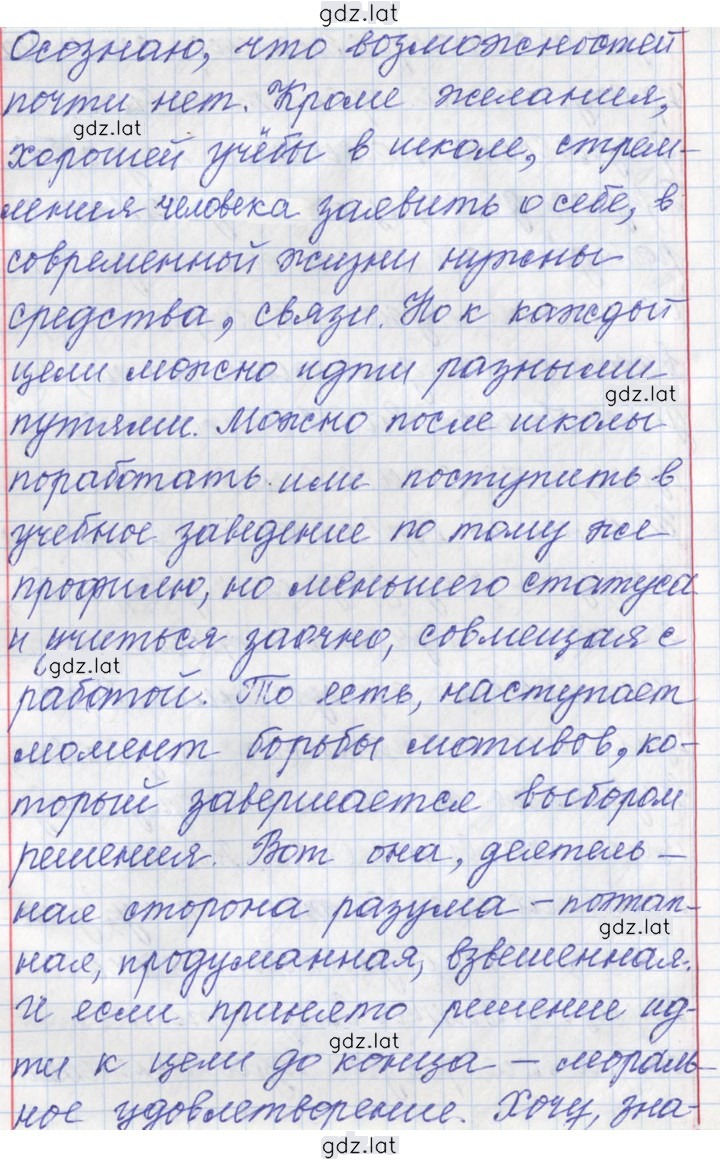 gdz.lat
Осознаю, что возможностей
почти нет. Кроме желания,
gdz.lat
хорошей учёбы в школе, стрем-
ления человека заявить о себе, в
современной жизни нужны
средства, связи. Но к каждой
цели можно идти разными
gdz.lat
путями. Можно после школы
поработать или поступить в
учебное заведение по тому же
профилю, но меньшего статуса
и учиться заочно, совмещая с
gdz.lat
работой. То есть, наступает
момент борьбы мотивов, ко-
торый завершается выбором
решения. Вот она, деятель-
ная сторона разума – поэтап-
gdz.lat
ная, продуманная, взвешенная.
И если принято решение ид-
gdz.lat
ти к цели до конца – мораль-
ное удовлетворение. Хочу, зна-
gdz.lat